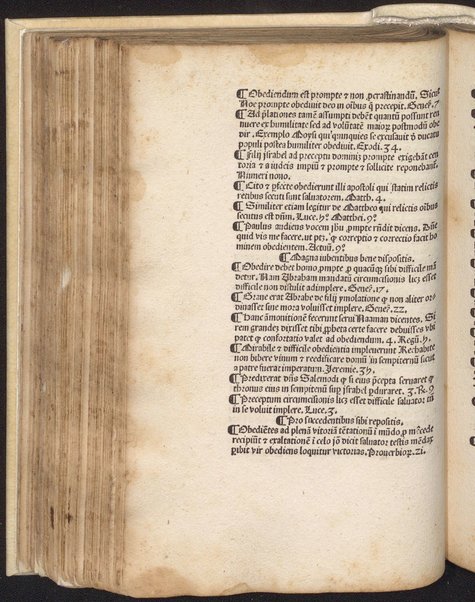 ¶ Obediendum est prompte ⁊ non ꝓcrastinandū. Sicut
Noe prompte obediuit deo in oībus q̄ precepit. Geneꝭ. 7
¶ Ad p̄lationes tamē assumpti debēt quantū possunt ren
nuere ex humilitate sed ad volūtatē maioꝝ postmodū obe
dir. Exemplo Moysi qui quinquies se excusauit ꝓ ducatu
populi postea humiliter obediuit. Exodi. 34.
¶ Filij israhel ad preceptū domini prompte exigebāt cen
toria ⁊ a iudeis impiū ⁊ prompte ⁊ sollicite reponebant.
Numeri nono.
¶ Cito ⁊ ꝑfecte obedierunt illi apostoli qui statim relictis
retibus secuti sunt saluatorem. Matth. 4.
¶ Similiter etiam legitur de Mattheo qui relictis oībus
secutus est dūm. Luce. 5⁰ Matthei. 9⁰
¶ Paulus audiens vocem ibu ꝓmpte rñdit dicens. Dñe
quid vis me facere. ut ptꝫ. ꝙ correptio ⁊ correctio facit ho
minem obedientem. Actuū. 9⁰
¶ Magna iubentibus bene dispositis.
¶ Obedire debet homo ꝓmpte ꝓ quacūqꝫ sibi difficile mā
detur. Nam Abraham mandatū circumcisionis licꝫ esset
difficile non distulit adimplere. Geneꝭ. 17.
¶ Graue erat Abrahe de filij ymolatione ꝙ non aliter or
dinasset sine mora voluisset implere. Geneꝭ. 22.
¶ Hanc āmonitionē fecerunt serui Naaman dicentes. Si
rem grandeꝫ dixisset tibi ꝓpheta certe facere debuisses vbi
patet ꝙ confortatio valet ad obediendum. 4. Regū. 5.
¶ Mirabile ⁊ difficile obedientia impleuerunt Rechabite
non bibere vinum ⁊ reedificare domū in sempiternū sicut
a patre fuerat imperatum. Jeremie. 35.
¶ Predixerat dñs Salemodi ꝙ si eius p̄cepta seruaret ꝙ
thronus eius in sempiternū suꝑ israhel ꝑduraret. 3. R. 9
¶ Preceptum circumcisionis licꝫ esset difficile saluator tm̄
in se voluit implere. Luce. 3.
¶ Pro succedentibus sibi repositis.
¶ Obediētes ad plenā victoriā tētationū i mūdo ꝓmerede
recipiūt ⁊ exaltationē i celo iō dicit saluator testis mēdax
ꝑibit vir obediens loquitur victorias. Prouerbioꝝ. 21.